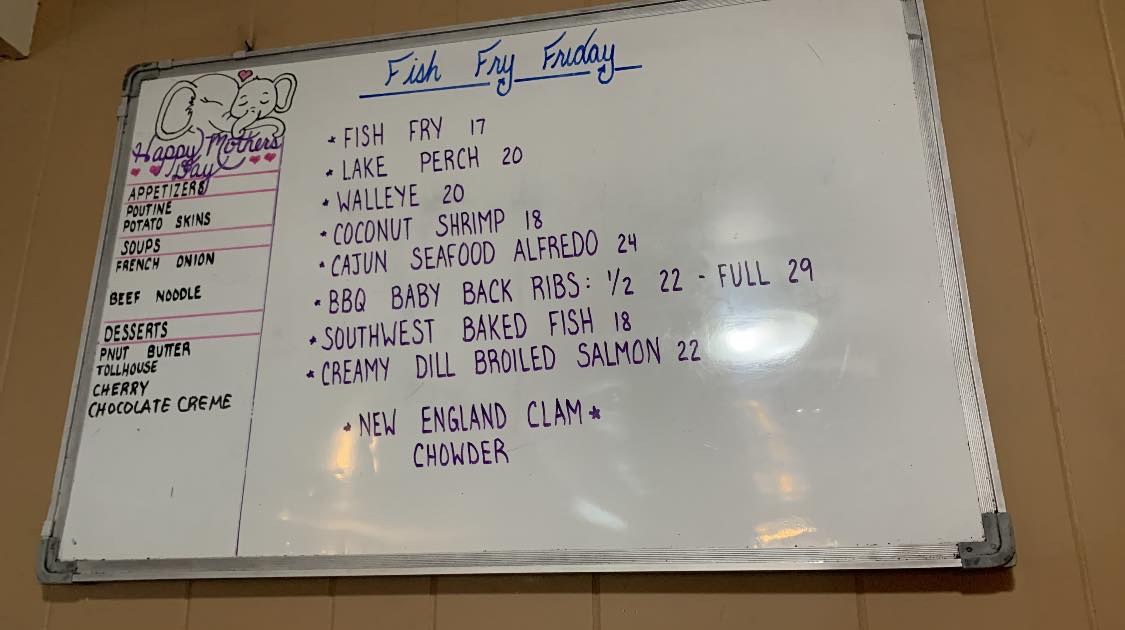 Fish Fry Friday
Happy Mothers
Day
APPETIZERS
POUTINE
POTATO SKINS
SOUPS
FRENCH ONION
BEEF NOODLE
DESSERTS
PNUT BUTTER
TOLLHOUSE
CHERRY
CHOCOLATE CREME
* FISH FRY 17
* LAKE PERCH 20
* WALLEYE 20
* COCONUT SHRIMP 18
* CAJUN SEAFOOD ALFREDO 24
* BBQ BABY BACK RIBS: 1/2 22 - FULL 29
* SOUTHWEST BAKED FISH 18
* CREAMY DILL BROILED SALMON 22
* NEW ENGLAND CLAM *
CHOWDER